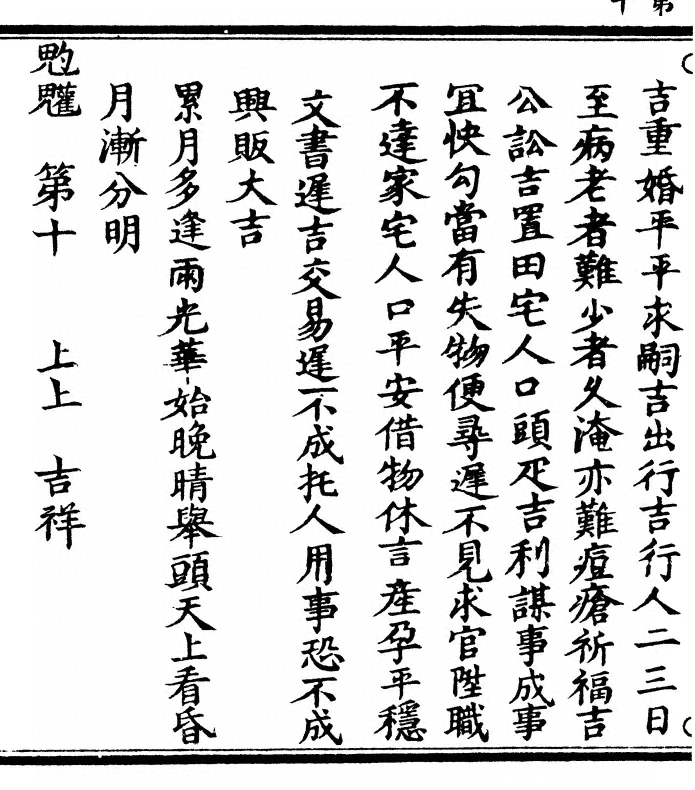 吉重婚平平求嗣吉出行吉行人二三日
至病老者難少者久淹亦難痘瘡祈福吉
公訟吉置田宅人口頭疋吉利謀事成事
冝快勾當有失物便尋遲不見求官陞職
不達家宅人口平安借物休言產孕平穩
文書遲吉交易遲不成托人用事恐不成
興販大吉
累月多逢雨光華始晚晴舉頭天上看昏
月漸分明
第十 上上 吉祥